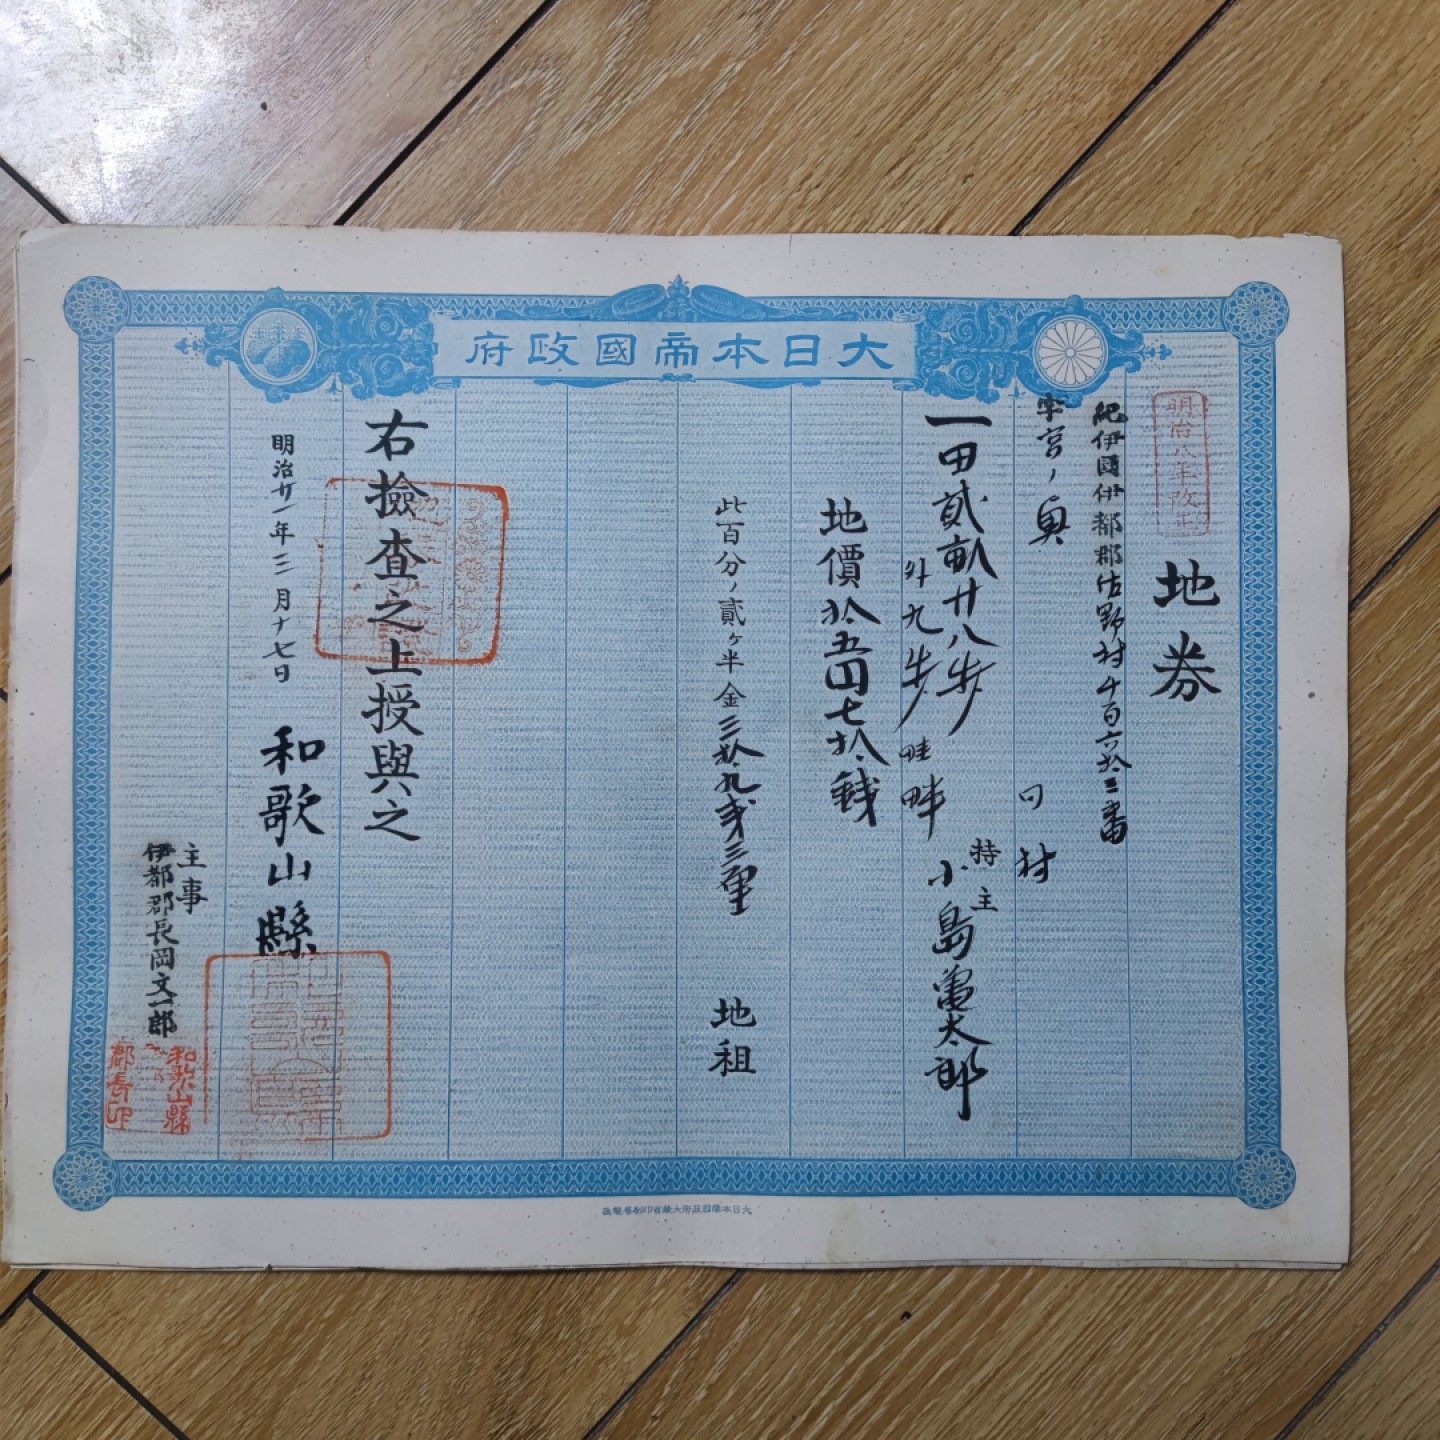 大日本帝國政府
明治八年改正
地券
紀伊國伊都郡佐野村千百六拾三番
字宮ノ奥
一田貳畝廿八歩
外九歩 畦畔
同村
持主
小島亀太郎
地價拾五円七拾銭
此百分ノ貳ヶ半金三拾九銭三厘 地租
右撿查之上授與之
明治廿一年三月十七日 和歌山縣
主事
伊都郡長岡文一郎
和歌山縣
郡長印
大日本帝國政府大蔵省印刷局製造